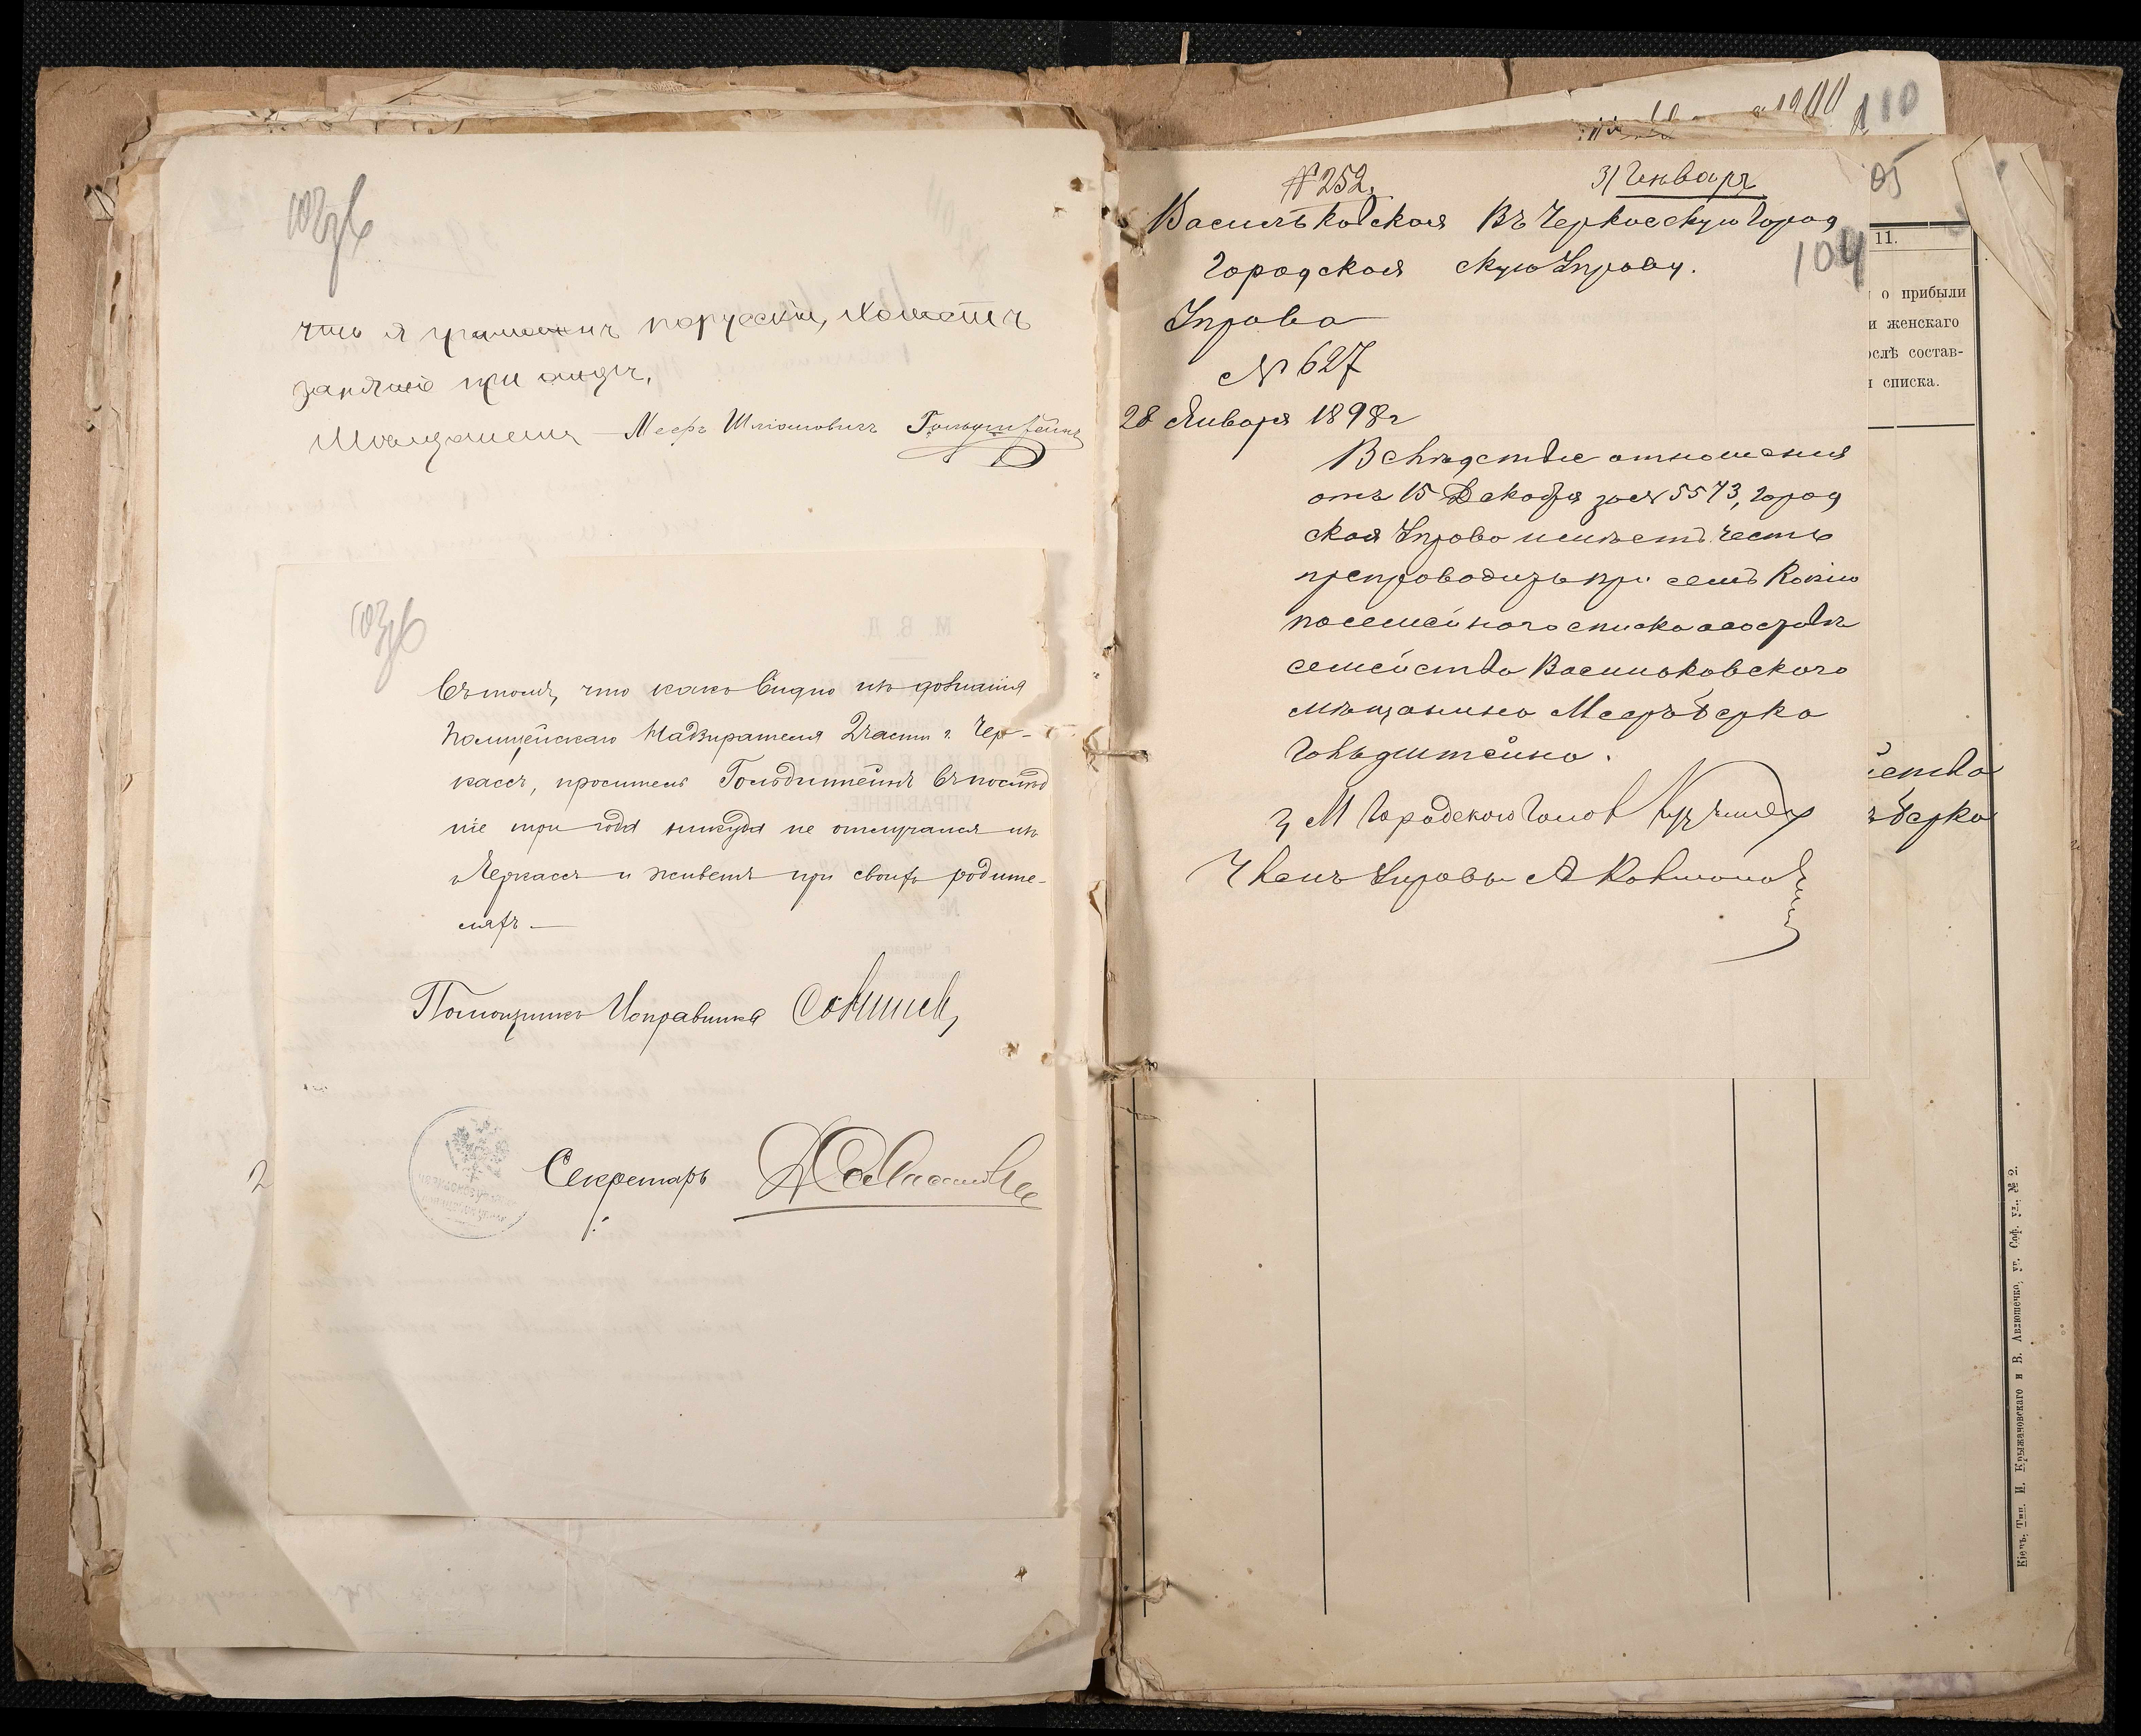 103 об
что я грамотенъ порусски, холостъ
занятие при отцѣ.
Мѣщанинъ Мееръ Шліомовичъ Гольдштейнъ
103 об
въ томъ, что какъ видно изъ дознанія
Полицейскаго Надзирателя 2 части г. Чер-
кассъ, проситель Гольдштейнъ въ послѣд
ніе три года никуда не отлучался изъ
г. Черкассъ и живетъ при своихъ родите-
ляхъ.—
Помощникъ Исправника
Секретарь
2
1900
110
№ 252.
31 Января
05
Васильковская
Городская
Управа
№ 627
28 Января 1898 г
Въ Черкасскую Город
скую Управу.
104
Вслѣдствіе отношенія
отъ 15 Декабря за № 5573, Город
ская Управа имѣетъ честь
препроводить при семъ копію
посемейнаго списка о составѣ
семейства Васильковского
мѣщанина Мееръ Берка
Гольдштейна.
з М Городского Голов
Членъ Управы
11.
о прибыли
и женскаго
ослѣ состав-
и списка.
йства
ъ Берка
Кіевъ, Тип. И. Крыжановскаго и В. Авдюшенко, уг. Соф. ул., № 2.